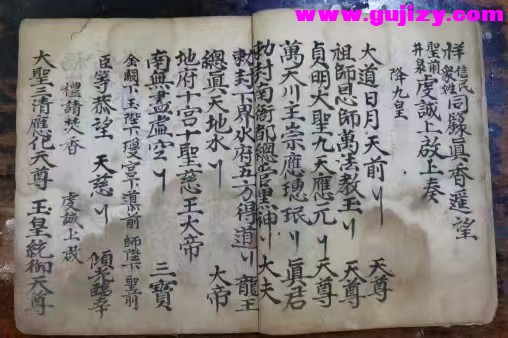 www.gujizy.com
祥信民
聖前衆姓同爇真香遥望
井泉虔誠上啟上奏
降九皇
大道日月天前 天尊
祖師恩師萬法教王 天尊
貞明大聖九天應元 天尊
萬天川主崇應 真君
勅封南衙都總管 神 大夫
勅封下界水府五方得道 龍王
總真天地水 大帝
地府十宫十聖慈王大帝
南無盡虚空 三寶
金闕下玉陛下瓊宫下道前師陛下聖前
臣等恭望 天慈 降臨幸
禮請焚香 虔誠上啟
大聖三清應化天尊 玉皇統御天尊